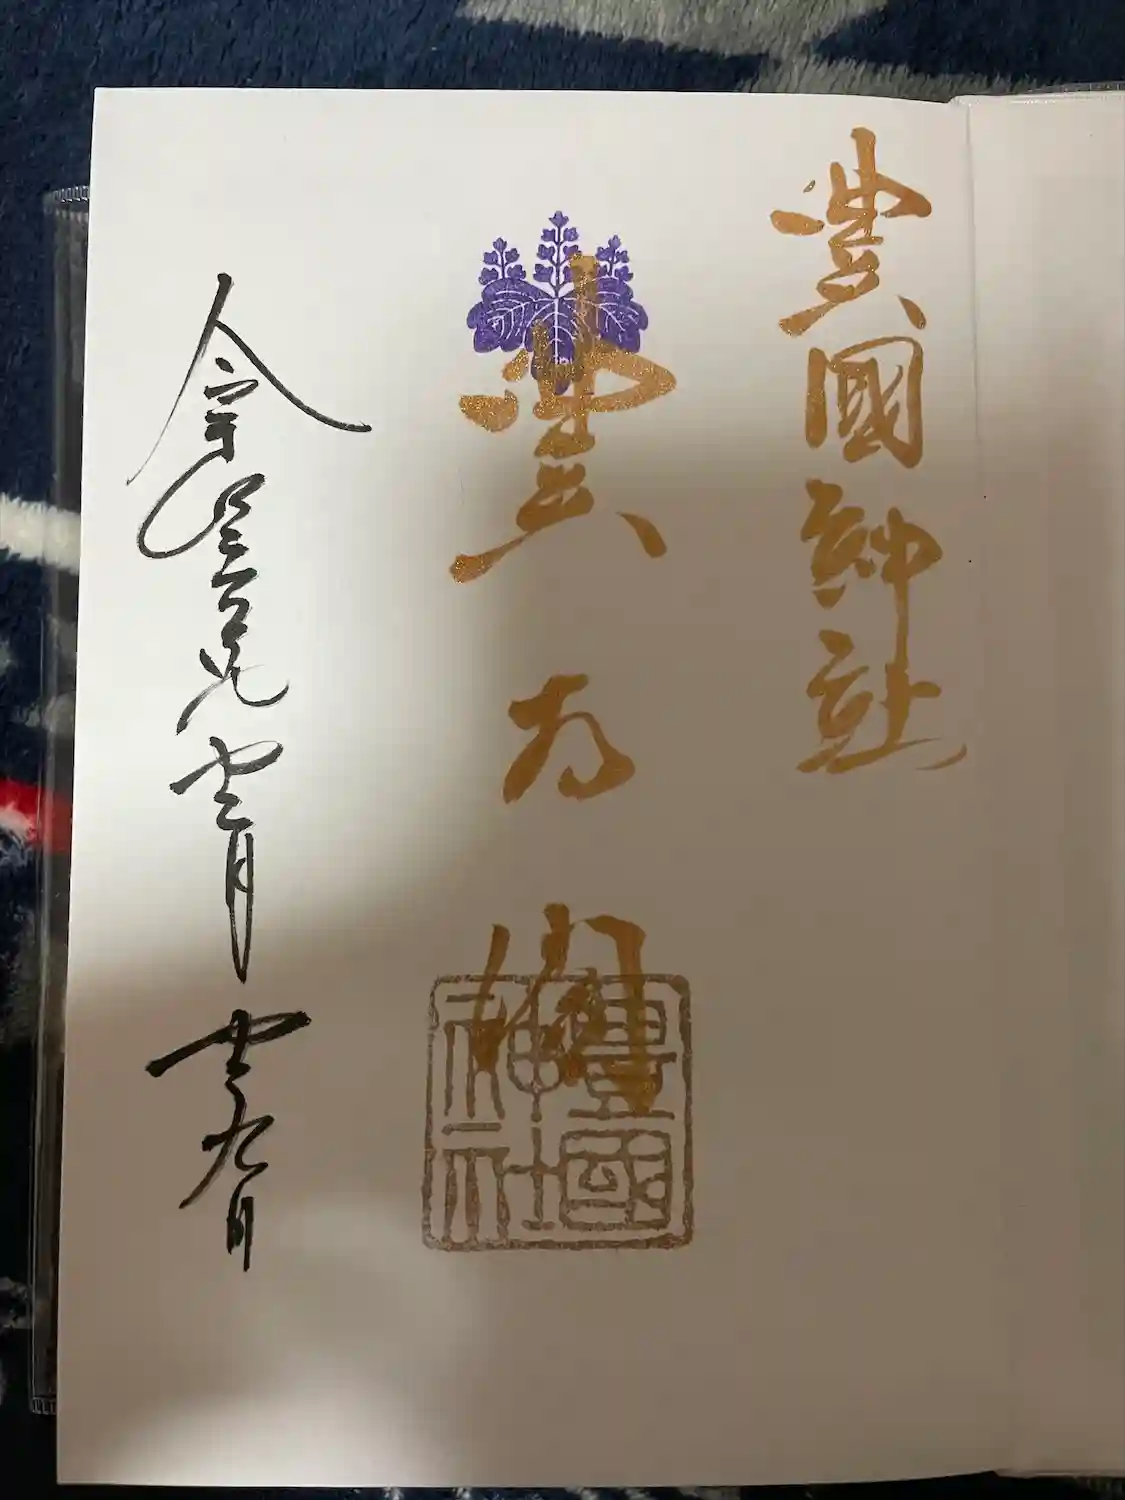 豊國神社
豊太閤
豊國神社
令和 十二月十九日